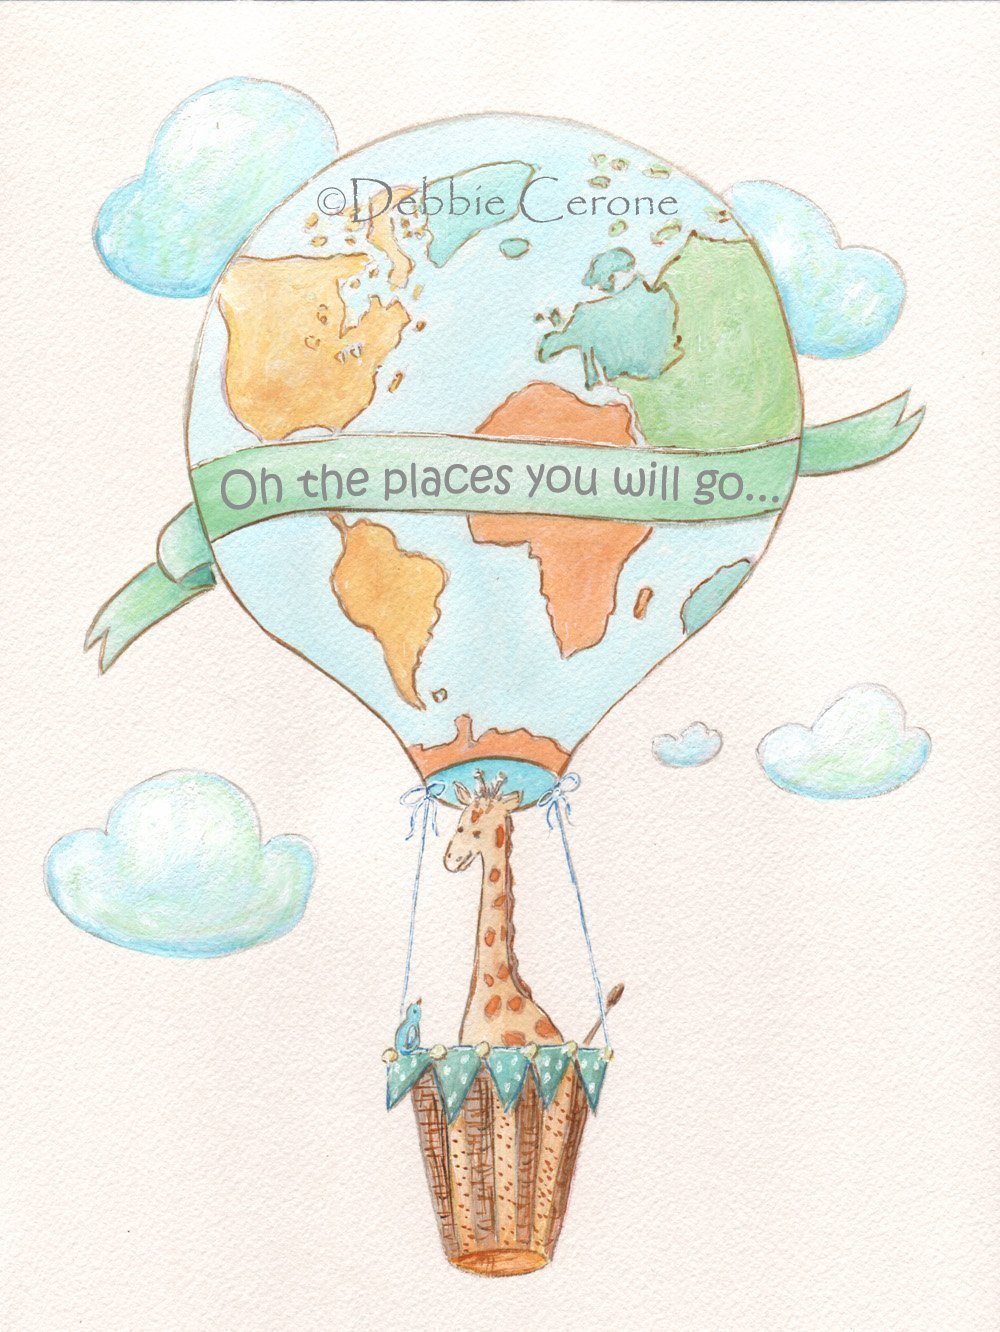 ©Debbie Cerone
Oh the places you will go...